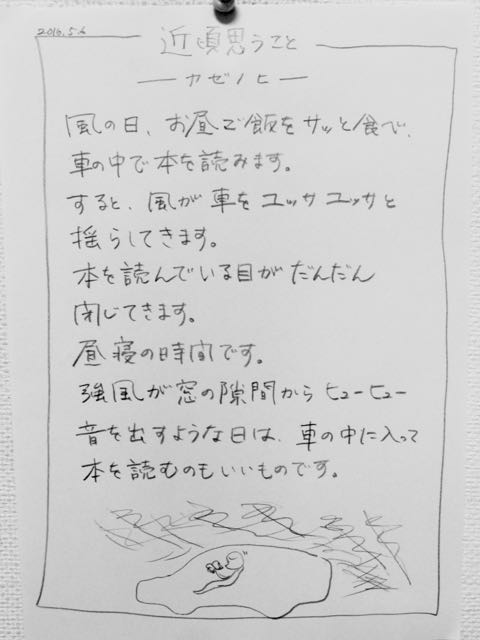 2016.5.6
近頃思うこと
— カゼノヒ —
風の日、お昼ご飯をサッと食べ、
車の中で本を読みます。
すると、風が車をユッサユッサと
揺らしてきます。
本を読んでいる目がだんだん
閉じてきます。
昼寝の時間です。
強風が窓の隙間からヒューヒュー
音を出すような日は、車の中に入って
本を読むのもいいものです。